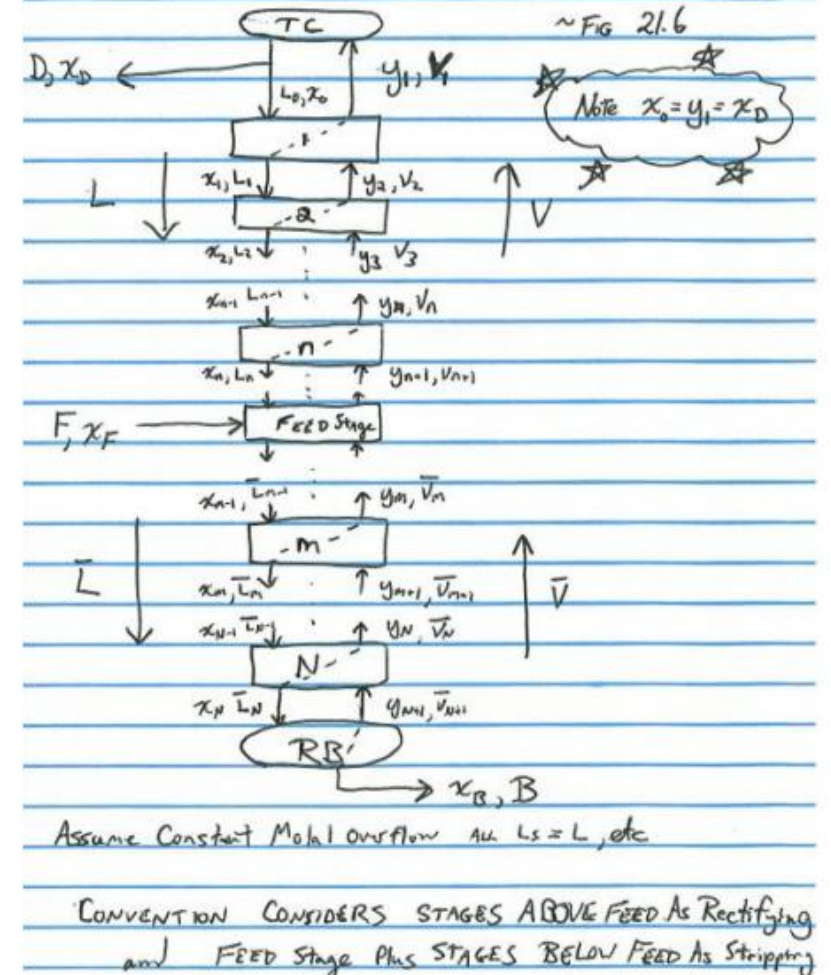 TC
~ FIG 21.6
D, x_D
y_1, V_1
L_0, x_0
Note x_0 = y_1 = x_D
1
x_1, L_1
y_2, V_2
L
V
2
x_2, L_2
y_3 V_3
x_{n-1} L_{n-1}
y_n, V_n
n
x_n, L_n
y_{n+1}, V_{n+1}
F, x_F
FEED Stage
x_{m-1}, L̄_{m-1}
y_m, V̄_m
m
L̄
V̄
x_m, L̄_m
y_{m+1}, V̄_{m+1}
x_{N-1} L̄_{N-1}
y_N, V̄_N
N
x_N L̄_N
y_{N+1}, V̄_{N+1}
RB
x_B, B
Assume Constant Molal Overflow ALL Ls = L, etc
CONVENTION CONSIDERS STAGES ABOVE FEED As Rectifying
and FEED Stage Plus STAGES BELOW FEED As Stripping